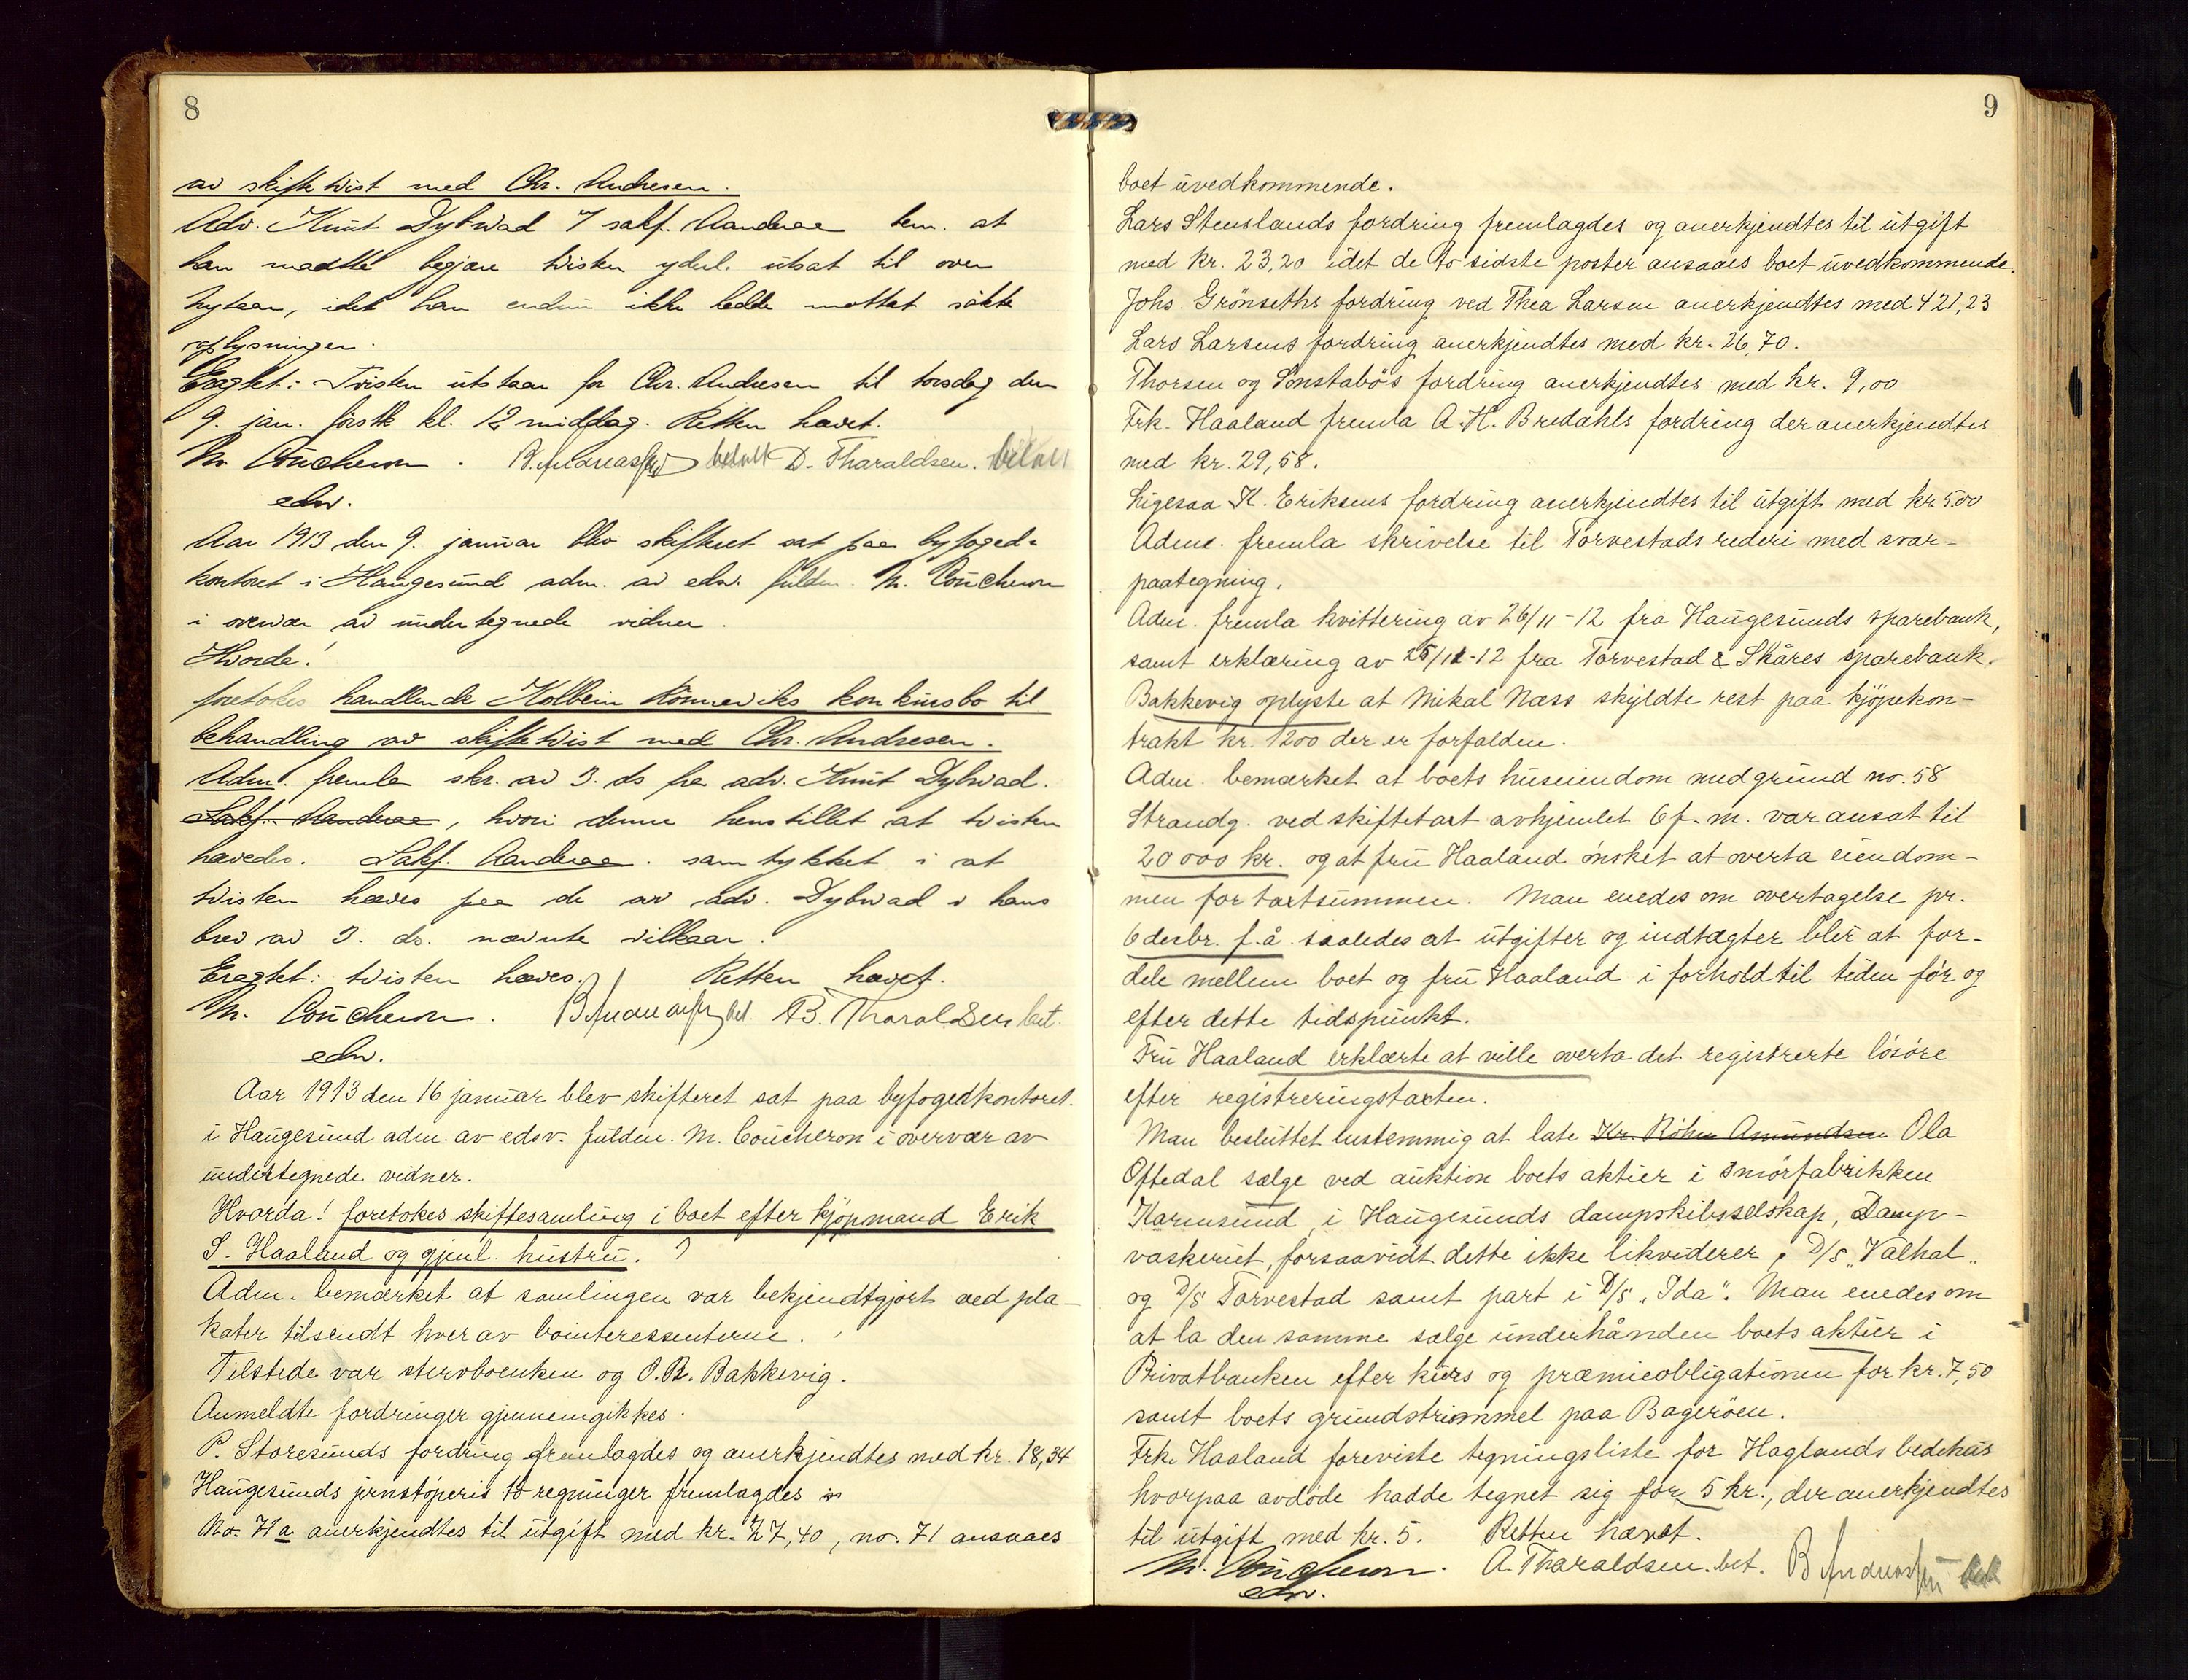 8
av skiftetvist med Chr. Andresen.
Adv. Knut Dybwad v/ sakf. Aanderaa bem. at
han maatte begjære tvisten yderl. utsat til over
nytaar, idet han endnu ikke hadde mottat søkte
oplysninger.
Eragtet: Tvisten utstaar for Chr. Andresen til torsdag den
9. jan. førstk kl. 12 middag. Retten hævet.
M. Coucheron. B. Andreassen betalt D. Tharaldsen. betalt
edsv.
Aar 1913 den 9. januar blev skifteret sat paa byfoged-
kontoret i Haugesund adm. av edsv. fuldm. M. Coucheron
i overvær av undertegnede vidner.
Hvorda!
foretokes handlende Kolbein Rønneviks konkursbo til
behandling av skiftetvist med Chr. Andresen.
Adm. fremla skr. av 3. ds fra adv. Knut Dybwad.
Sakf. Aanderaa, hvori denne henstillet at tvisten
hævedes. Sakf. Aanderaa. samtykket i at
tvisten hæves paa de av adv. Dybwad i hans
brev av 3. ds. nævnte vilkaar.
Eragtet: tvisten hæves. Retten hævet.
M. Coucheron. B. Andreassen bet B. Tharaldsen bet.
edsv.
Aar 1913 den 16 januar blev skifteret sat paa byfogedkontoret.
i Haugesund adm. av edsv. fuldm. M. Coucheron i overvær av
undertegnede vidner.
Hvorda! foretokes skiftesamling i boet efter kjøpmand Erik
S. Haaland og gjenl. hustru.
Adm. bemærket at samlingen var bekjendtgjort ved pla-
kater tilsendt hver av bointeressenterne.
Tilstede var stervboenken og O. B. Bakkevig.
Anmeldte fordringer gjennemgikkes.
P. Storesunds fordring fremlagdes og anerkjendtes med kr. 18,34
Haugesunds jernstøperis to regninger fremlagdes
No. 71a anerkjendtes til utgift med kr. 27,40, no. 71 ansaaes
9
boet uvedkommende.
Lars Stenslands fordring fremlagdes og anerkjendtes til utgift
med kr. 23,20 idet de to sidste poster ansaaes boet uvedkommende.
Johs. Grönseths fordring ved Thea Larsen anerkjendtes med 421,23
Lars Larsens fordring anerkjendtes med kr. 26,70.
Thorsen og Sonstabøs fordring anerkjendtes med kr. 9,00
Frk. Haaland fremla A. H. Bredahls fordring der anerkjendtes
med kr. 29,58.
Ligesaa K. Eriksens fordring anerkjendtes til utgift med kr 5.00
Adm. fremla skrivelse til Torvestads rederi med svar-
paategning.
Adm. fremla kvittering av 26/11-12 fra Haugesunds sparebank,
samt erklæring av 25/11-12 fra Torvestad & Skåres sparebank.
Bakkevig oplyste at Mikal Næss skyldte rest paa kjöpekon-
trakt kr. 1200 der er forfalden.
Adm. bemærket at boets huseiendom med grund no. 58
Strandg. ved skiftetaxt avhjemlet 6 f. m. var ansat til
20000 kr. og at fru Haaland ønsket at overta eiendom-
men for taxtsummen. Man enedes om overtagelse pr.
6 desbr. f. å. saaledes at utgifter og indtægter blir at for-
dele mellem boet og fru Haaland i forhold til tiden før og
efter dette tidspunkt.
Fru Haaland erklærte at ville overta det registrerte løsøre
efter registreringstaxten.
Man besluttet enstemmig at late Kr. Röhn Amundsen Ola
Oftedal sælge ved auktion boets aktier i Smørfabrikken
Karmsund, i Haugesunds dampskibsselskap, Damp-
vaskeriet, forsaavidt dette ikke likviderer, D/S „Valhal"
og D/S Torvestad samt part i D/S „Ida". Man enedes om
at la den samme sælge underhånden boets aktier i
Privatbanken efter kurs og præmieobligationen for kr. 7,50
samt boets grundstrimmel paa Bagerøen.
Frk. Haaland foreviste tegningsliste for Haglands bedehus
hvorpaa avdøde hadde tegnet sig for 5 kr., der anerkjendtes
til utgift med kr. 5. Retten hævet.
M. Coucheron. A. Tharaldsen. bet. B Andreassen bet
edsv.